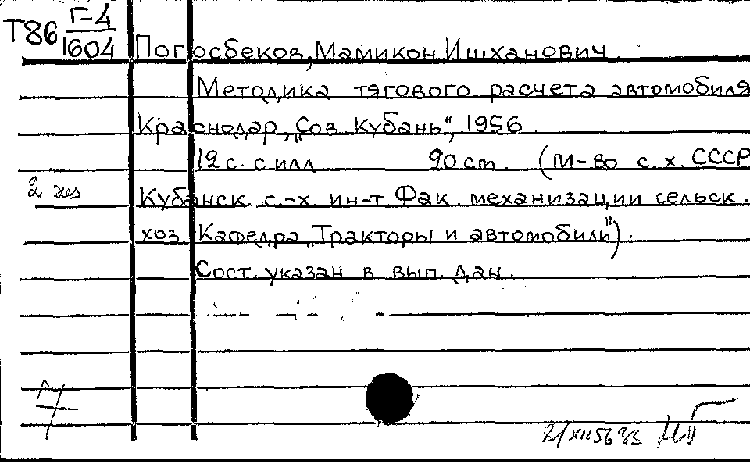 Т86 Г-4
1604 Погосбеков, Мамикон Ишханович.
Методика тягового расчета автомобиля
Краснодар, „Сов. Кубань“, 1956.
12 с. с илл 20 cm. (М-во с. х. СССР
2 экз Кубанск. с.-х. ин-т Фак. механизации сельск.
хоз Кафедра „Тракторы и автомобили“).
Сост. указан в вып. дан.